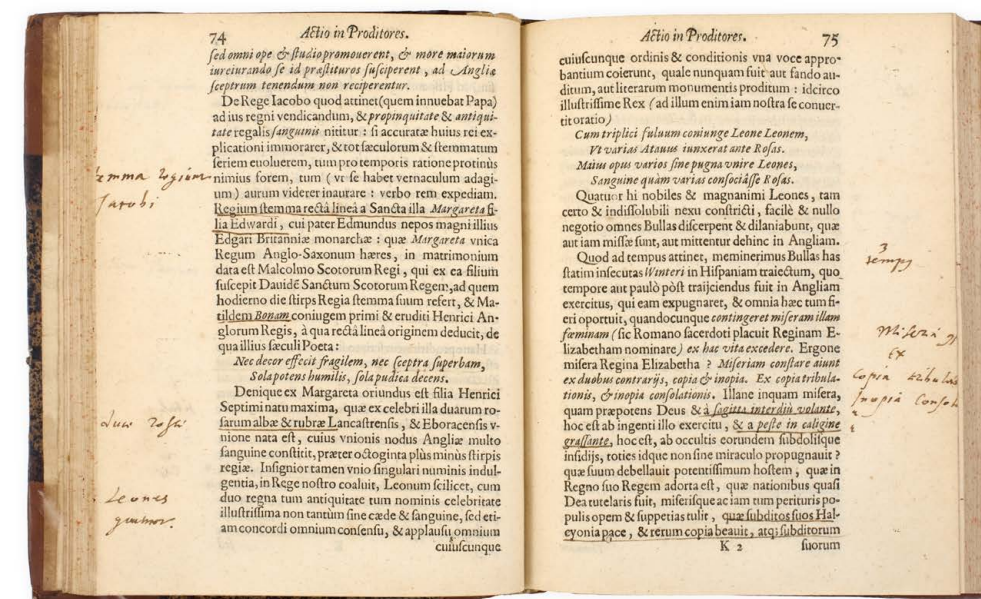 74 Actio in Proditores.
sed omni ope & studio promouerent, & more maiorum
iureiurando se id præstituros susciperent, ad Angliæ
sceptrum tenendum non reciperentur.
De Rege Iacobo quod attinet (quem innuebat Papa)
ad ius regni vendicandum, & propinquitate & antiqui-
tate regalis sanguinis nititur: si accuratæ huius rei ex-
plicationi immorarer, & tot sæculorum & stemmatum
seriem euoluerem, tum pro temporis ratione protinùs
nimius forem, tum (vt se habet vernaculum adagi-
um) aurum viderer inaurare: verbo rem expediam.
Regium stemma rectâ lineâ a Sancta illa Margareta fi-
lia Edwardi, cui pater Edmundus nepos magni illius
Edgari Britanniæ monarchæ: quæ Margareta vnica
Regum Anglo-Saxonum hæres, in matrimonium
data est Malcolmo Scotorum Regi, qui ex ea filium
suscepit Dauidē Sanctum Scotorum Regem, ad quem
hodierno die stirps Regia stemma suum refert, & Ma-
tildem Bonam coniugem primi & eruditi Henrici An-
glorum Regis, à qua rectâ lineâ originem deducit, de
qua illius sæculi Poeta:
Nec decor effecit fragilem, nec sceptra superbam,
Sola potens humilis, sola pudica decens.
Denique ex Margareta oriundus est filia Henrici
Septimi natu maxima, quæ ex celebri illa duarum ro-
sarum albæ & rubræ Lancastrensis, & Eboracensis v-
nione nata est, cuius vnionis nodus Angliæ multo
sanguine constitit, præter octoginta plùs minùs stirpis
regiæ. Insignior tamen vnio singulari numinis indul-
gentia, in Rege nostro coaluit, Leonum scilicet, cum
duo regna tum antiquitate tum nominis celebritate
illustrissima non tantùm sine cæde & sanguine, sed eti-
am concordi omnium consensu, & applausu omnium
cuiuscunque
Iacobi
Leones
Actio in Proditores. 75
cuiuscunque ordinis & conditionis vna voce appro-
bantium coierunt, quale nunquam fuit aut fando au-
ditum, aut literarum monumentis proditum: idcirco
illustrissime Rex (ad illum enim iam nostra se conuer-
tit oratio)
Cum triplici fuluum coniunge Leone Leonem,
Vt varias Atauus iunxerat ante Rosas.
Maius opus varios sine pugna vnire Leones,
Sanguine quàm varias consociâsse Rosas.
Quatuor hi nobiles & magnanimi Leones, tam
certo & indissolubili nexu constricti, facilè & nullo
negotio omnes Bullas discerpent & dilaniabunt, quæ
aut iam missæ sunt, aut mittentur dehinc in Angliam.
Quod ad tempus attinet, meminerimus Bullas has
statim insecutas Winteri in Hispaniam traiectum, quo
tempore aut paulò pòst traijciendus fuit in Angliam
exercitus, qui eam expugnaret, & omnia hæc tum fi-
eri oportuit, quandocunque contingeret miseram illam
fœminam (sic Romano sacerdoti placuit Reginam E-
lizabetham nominare) ex hac vita excedere. Ergone
misera Regina Elizabetha? Miseriam constare aiunt
ex duobus contrarijs, copia & inopia. Ex copia tribula-
tionis, & inopia consolationis. Illane inquam misera,
quam præpotens Deus & à sagitta interdiù volante,
hoc est ab ingenti illo exercitu, & a peste in caligine
grassante, hoc est, ab occultis eorundem subdolisque
insidijs, toties idque non sine miraculo propugnauit?
quæ suum debellauit potentissimum hostem, quæ in
Regno suo Regem adorta est, quæ nationibus quasi
Dea tutelaris fuit, miserisque ac iam tum perituris po-
pulis opem & suppetias tulit, quæ subditos suos Hal-
cyonia pace, & rerum copia beauit, atq; subditorum
K 2 suorum
3
Ex